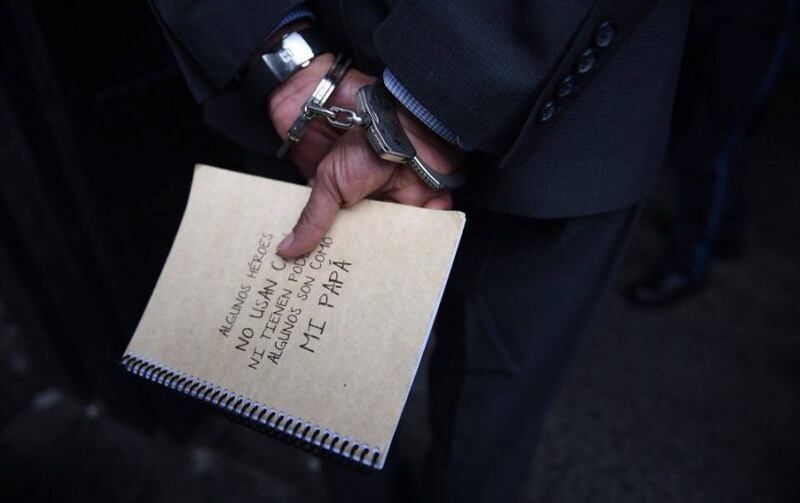 ALGUNOS HÉROES
NO USAN
NI TIENEN
ALGUNOS SON COMO
MI PAPÁ